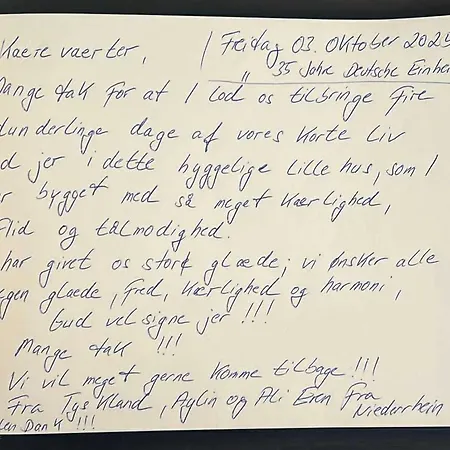 Kaere vaerter, / Freitag 03. Oktober 2025
" 35 Jahre Deutsche Einhei
Mange tak for at I lod os tilbringe fire
underlinge dage af vores korte liv
d jer i dette hyggelige lille hus, som I
r bygget med så meget kærlighed,
flid og tålmodighed.
har givet os stort glæde; vi ønsker alle
gen glaede, fred, kærlighed og harmoni,
Gud velsigne jer !!!
Mange tak !!!
Vi vil meget gerne komme tilbage !!!
Fra Tyskland, Aylin og Ali Eren fra
Niederrhein
len Dank !!!